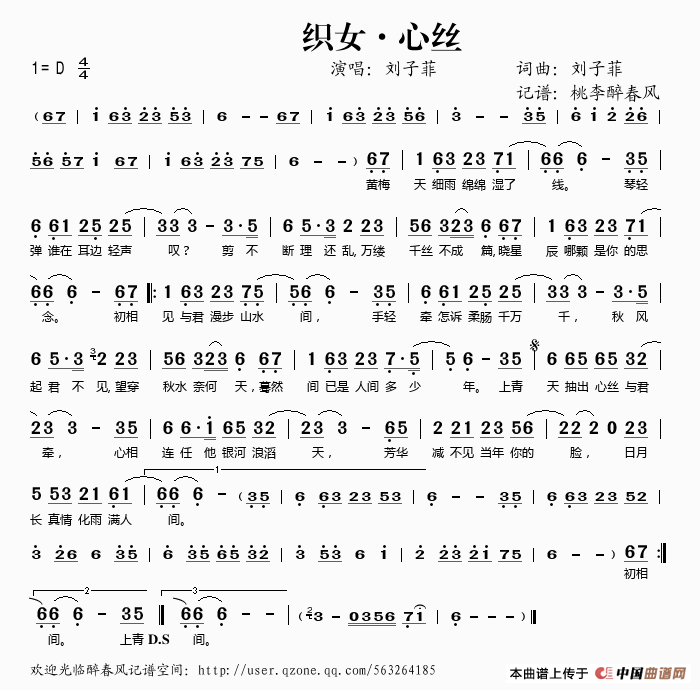 织女·心丝
1= D 4/4
演唱：刘子菲
词曲：刘子菲
记谱：桃李醉春风
（67 | i 63 23 53 | 6 - - 67 | i 63 23 56 | 3 - - 35 | 6 i 2 26 |
56 57 i 67 | i 63 23 75 | 6 - - ) 67 | 1 63 23 71 | 66 6 - 35 |
黄梅 天 细雨 绵绵 湿了 线。 琴轻
6 61 25 25 | 33 3 - 3·5 | 6 5·3 2 23 | 56 323 6 67 | 1 63 23 71 |
弹 谁在 耳边 轻声 叹? 剪 不 断 理 还 乱,万缕 千丝 不成 篇,晓星 辰 哪颗 是你 的思
66 6 - 67 |: 1 63 23 75 | 56 6 - 35 | 6 61 25 25 | 33 3 - 3·5 |
念。 初相 见 与君 漫步 山水 间， 手轻 牵 怎诉 柔肠 千万 千， 秋 风
6 5·3 2 23 | 56 323 6 67 | 1 63 23 7·5 | 5 6 - 35 | 6 65 65 32 |
起 君 不 见,望穿 秋水 奈何 天,蓦然 间 已是 人间 多 少 年。 上青 天 抽出 心丝 与君
23 3 - 35 | 6 6·i 65 32 | 23 3 - 65 | 2 21 23 56 | 22 2 0 23 |
牵， 心相 连 任 他 银河 浪滔 天， 芳华 减 不见 当年 你的 脸， 日月
1
5 53 21 61 | 66 6 - (35 | 35 63 23 53 | 6 - - 56 | 6 63 23 52 |
长 真情 化雨 满人 间。
3 26 6 35 | 6 35 65 32 | 3 53 6 i | 2 23 2i 75 | 6 - - ) 67 :|
初相
2 3
66 6 - 35 || 66 6 - - | (3 - 0356 71 | 6 - - - )||
间。 上青 D.S 间。
欢迎光临醉春风记谱空间：http://user.qzone.qq.com/563264185
本曲谱上传于 中国曲谱网